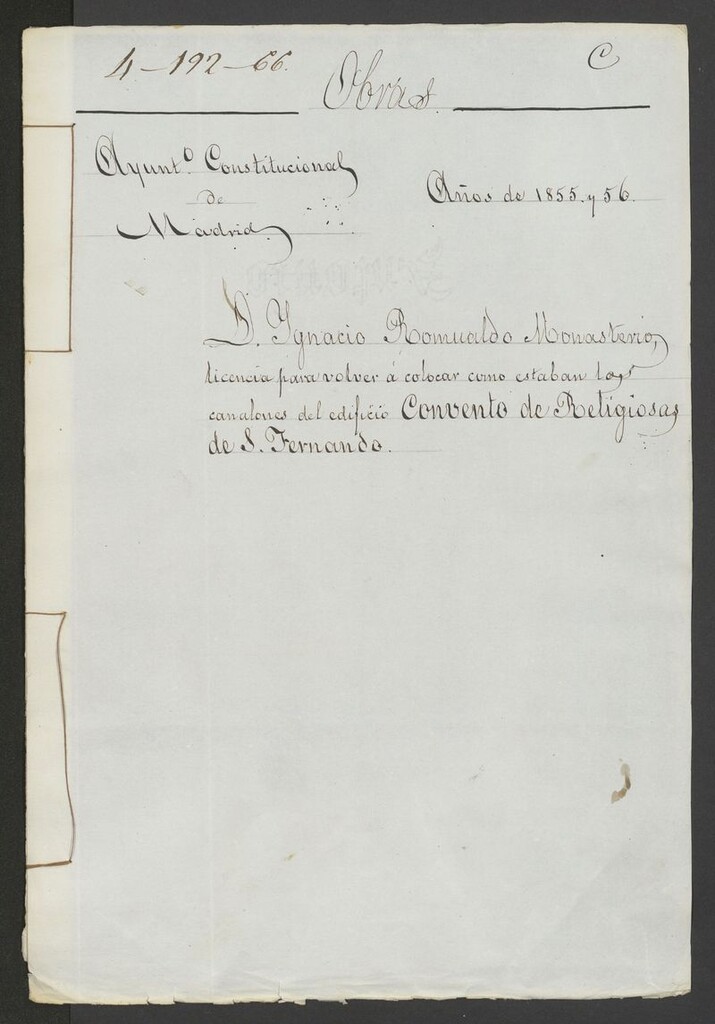 4-192-66.
C
Obras.
Ayunt.º Constitucional
de
Madrid.
Años de 1855. y 56.
D. Ygnacio Romualdo Monasterio,
licencia para volver á colocar como estaban los
canalones del edificio Convento de Religiosas
de S. Fernando.